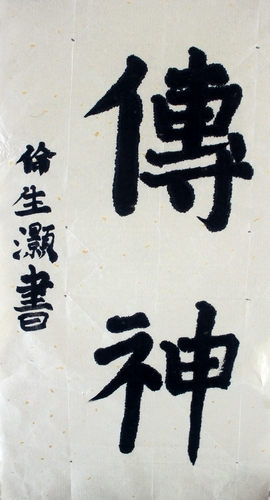 傳神
俗生灏書